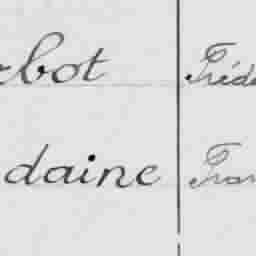 rbot Fréd
daine Fran